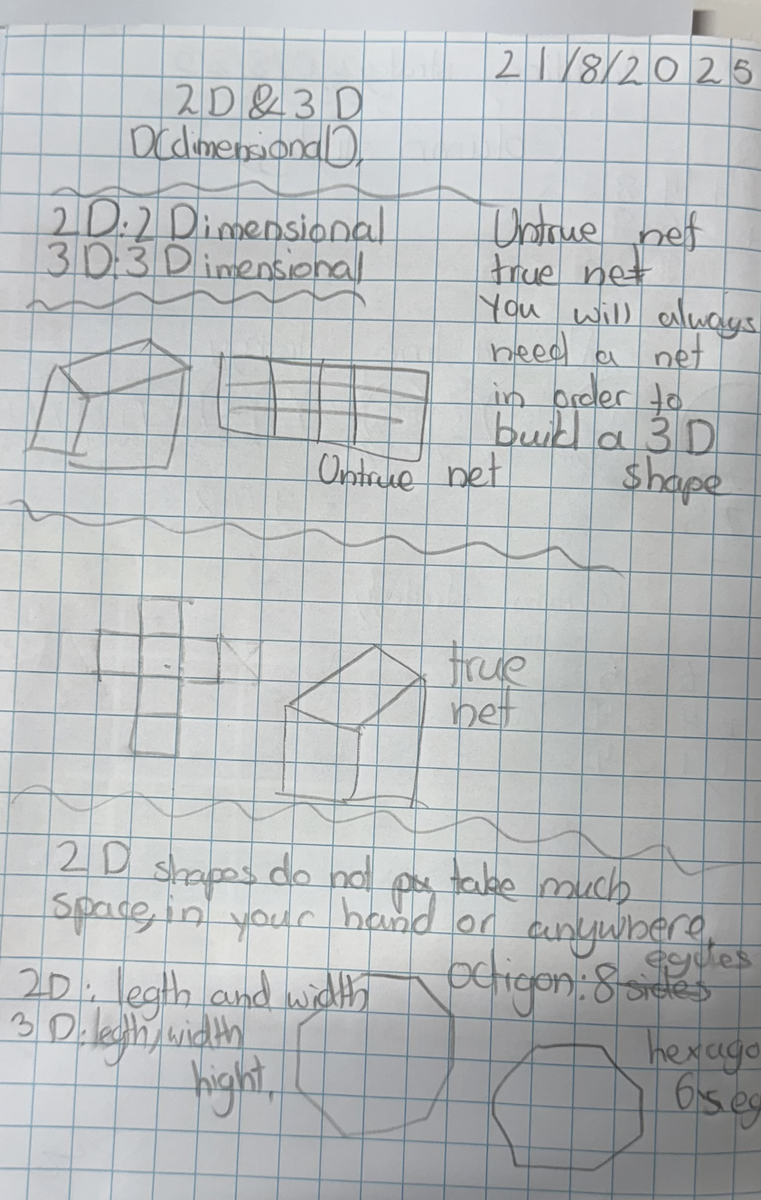 21/8/2025
2D & 3D
D(dimensional).
2D:2 Dimensional
3D:3 Dimensional
Untrue net
true net
You will always
need a net
in order to
build a 3D
shape
Untrue net
true
net
2D shapes do not take much
space, in your hand or anywhere,
2D: legth and width
3D: legth, width
hight.
octigon: 8 sides
hexago
6